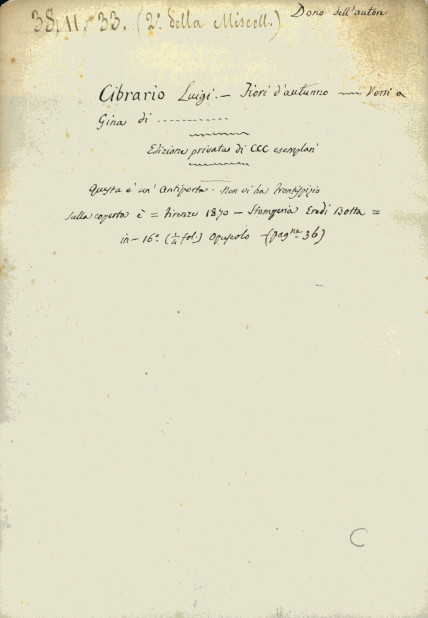 38, 11, 33. (2ª della Miscell.) Dono dell'autore
Cibrario Luigi. — Fiori d'autunno — Versi a
Gina di ..............
Edizione privata di CCC esemplari
Questa è un' Antiporta. Non vi ha Frontispizio
Sulla coperta è = Firenze 1870 — Stamperia Eredi Botta =
in-16º (¼ fol.) Opuscolo — (pagne 36)
C